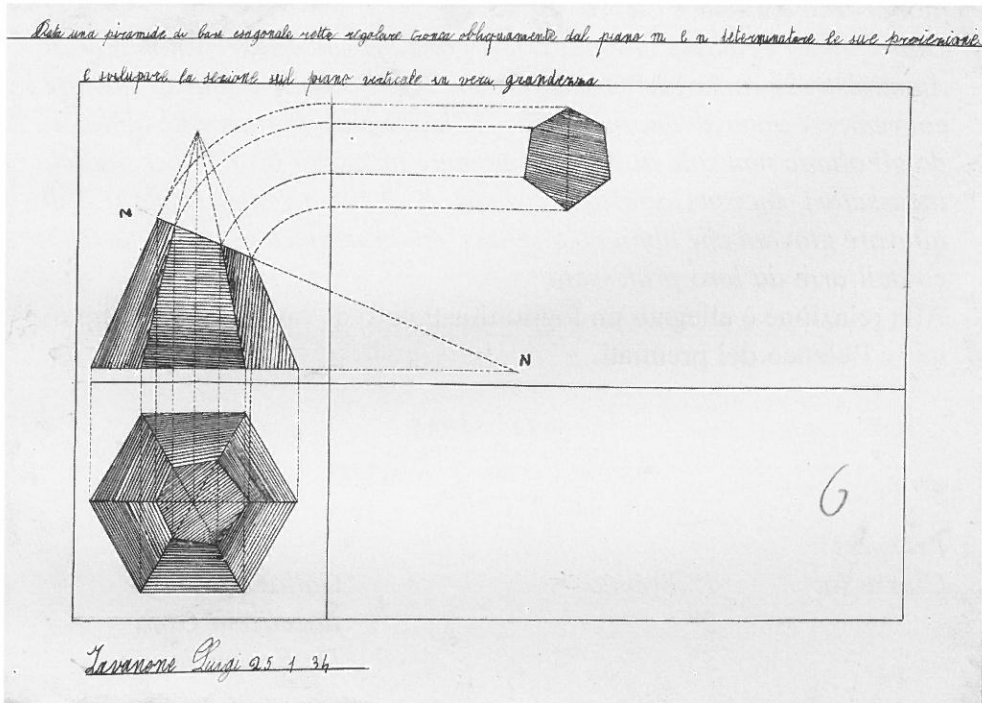 Data una piramide di base esagonale retta regolare tronca obliquamente dal piano m e n determinatore le sue proienzioni
e sviluparl la sezione sul piano verticale in vera grandenna
N
N
6
Zavanone Luigi 25 1 34